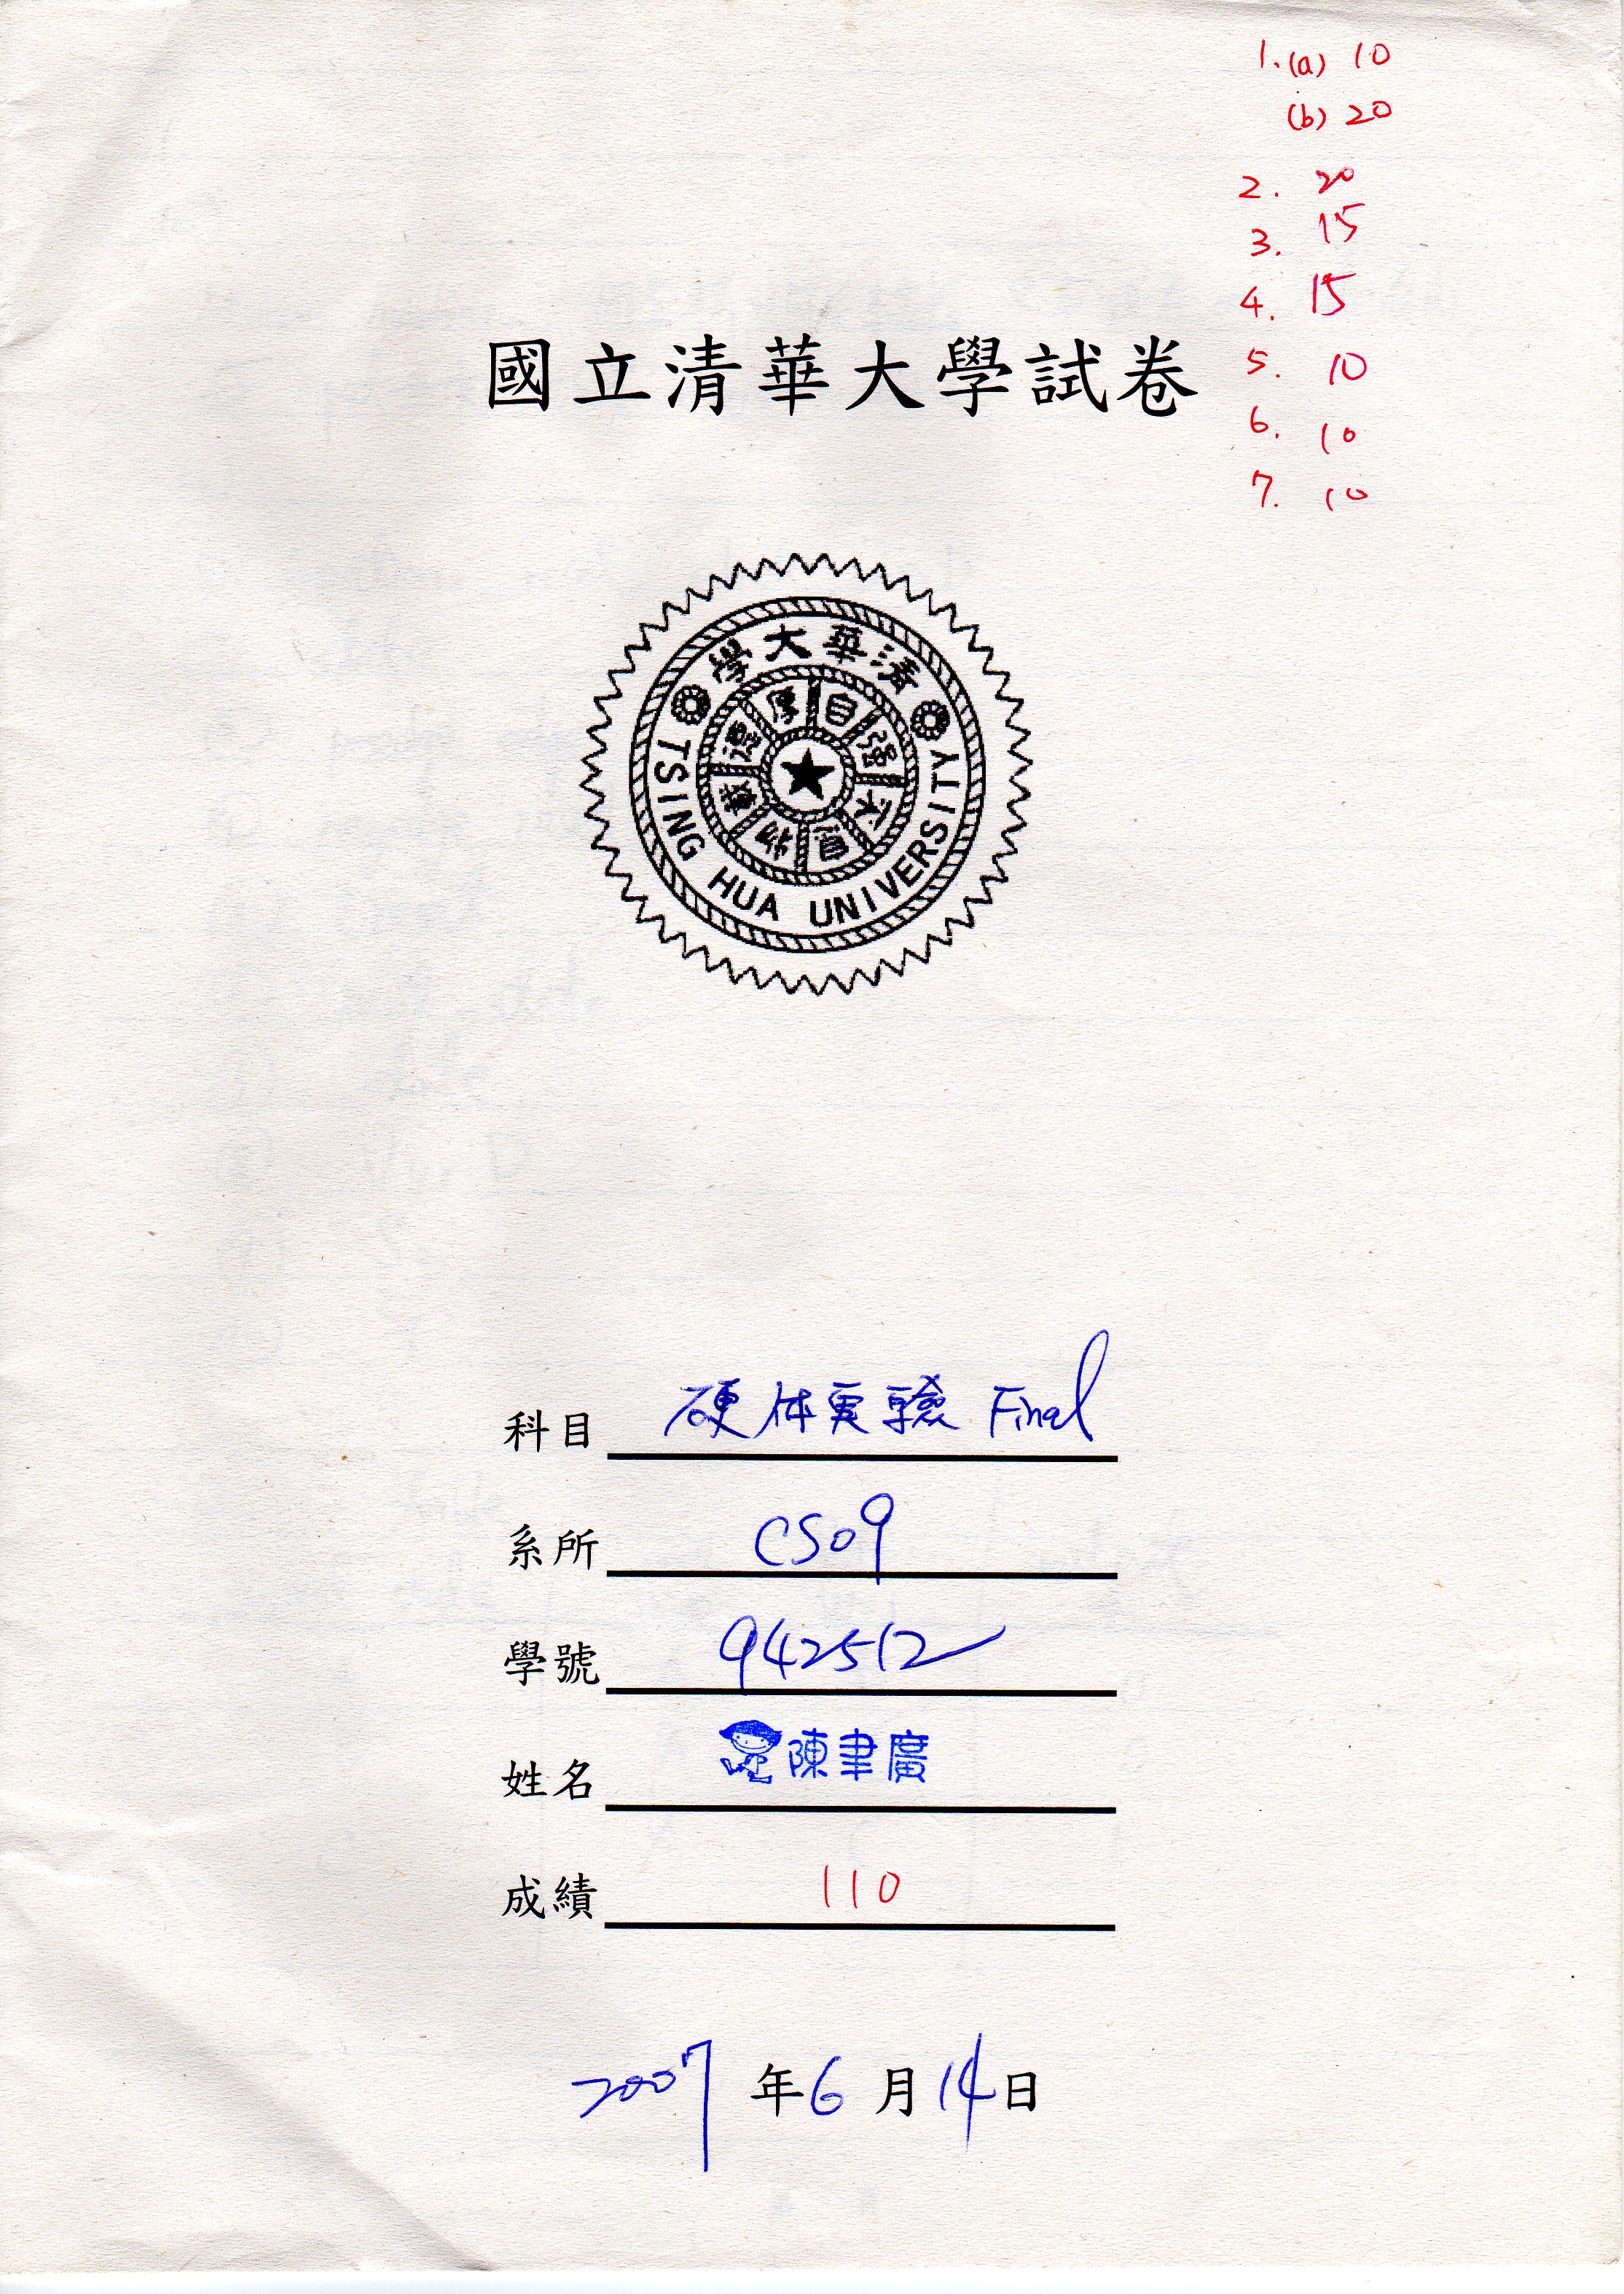 1. (a) 10
(b) 20
2. 20
3. 15
4. 15
5. 10
6. 10
7. 10
國立清華大學試卷
學大華清
自强不息
厚德載物
TSING HUA UNIVERSITY
科目 硬体実驗 Final
系所 CS09
學號 942512
姓名 陳聿廣
成績 110
2007年6月14日